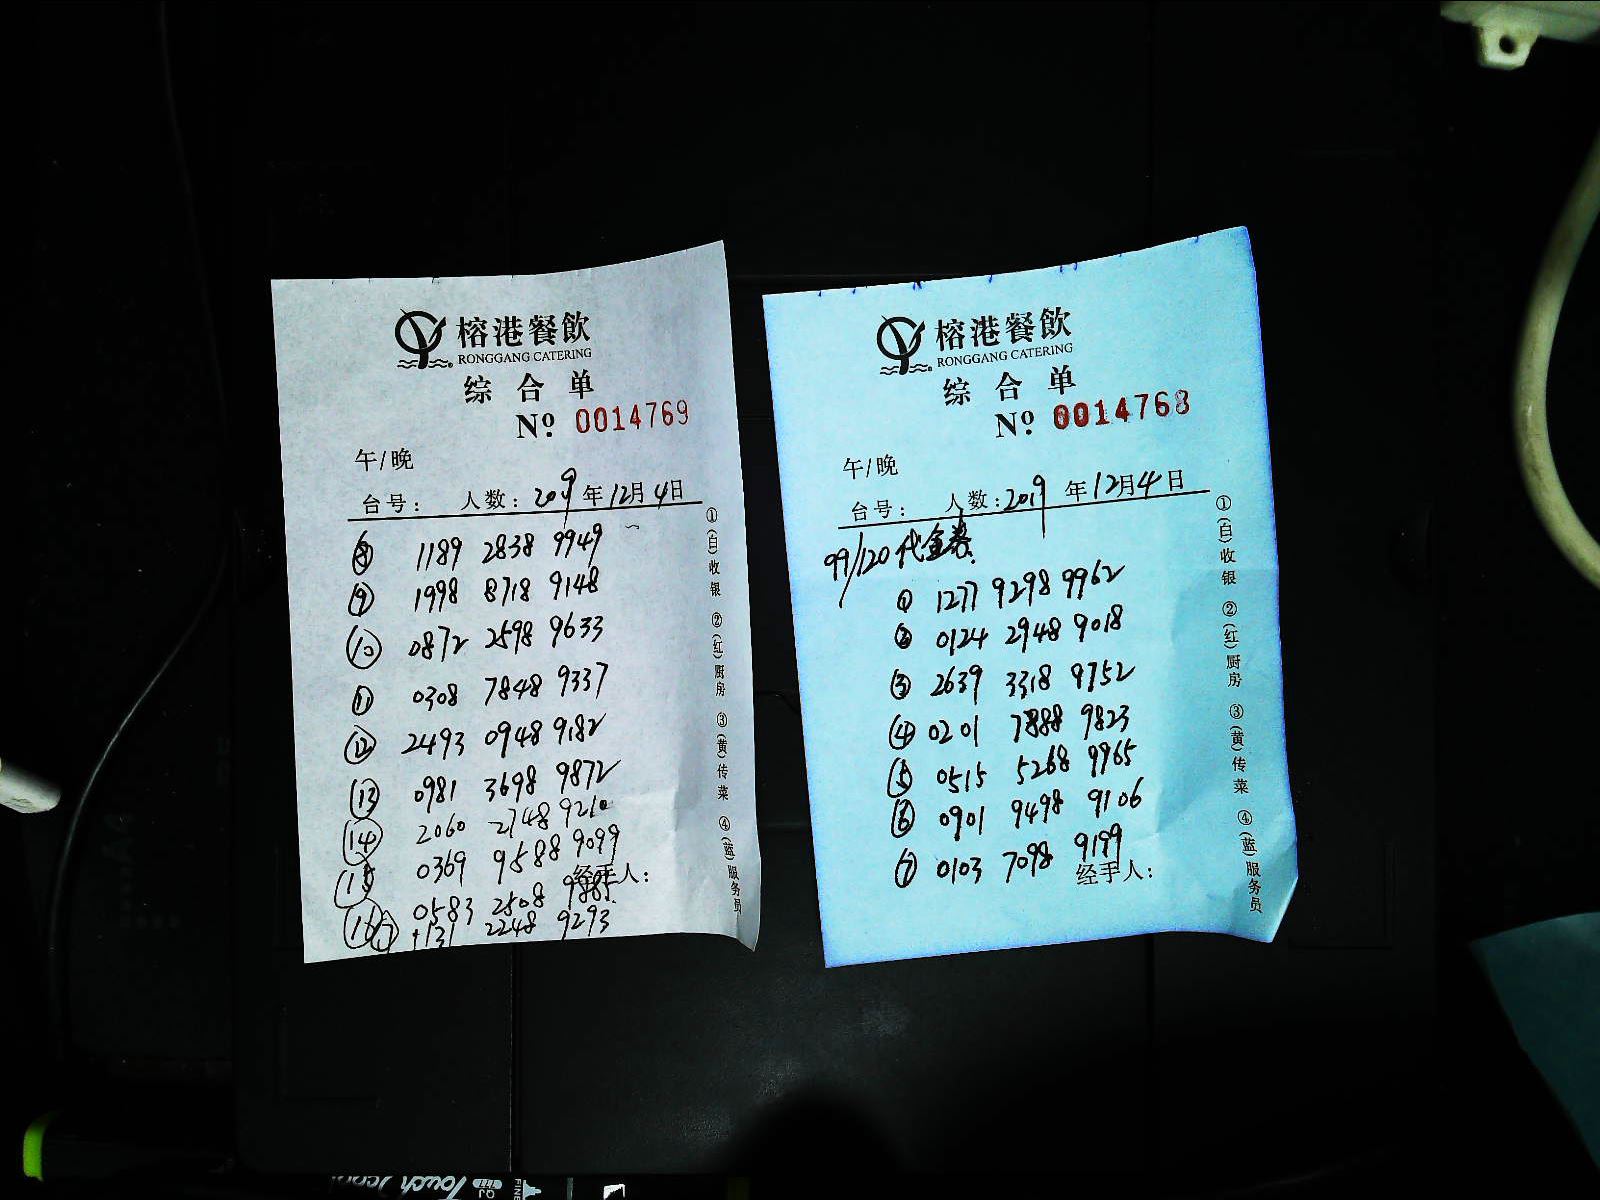 榕港餐飲
RONGGANG CATERING
综合单
Nº 0014769
午/晚
台号: 人数: 2019年12月4日
⑧ 1189 2838 9949
⑨ 1998 8718 9148
⑩ 0872 2598 9633
⑪ 0308 7848 9337
⑫ 2493 0948 9182
⑬ 0981 3698 9872
⑭ 2060 2748 9210
⑮ 0369 9588 9099
经手人:
⑯ 0583 2508 9885
⑰ 1131 2248 9293
①(白)收银 ②(红)厨房 ③(黄)传菜 ④(蓝)服务员
榕港餐飲
RONGGANG CATERING
综合单
Nº 0014768
午/晚
台号: 人数: 2019年12月4日
99/120代金券
① 1277 9298 9962
② 0124 2948 9018
③ 2639 3318 9752
④ 0201 7888 9823
⑤ 0515 5268 9965
⑥ 0901 9498 9106
⑦ 0103 7098 9199
经手人:
①(白)收银 ②(红)厨房 ③(黄)传菜 ④(蓝)服务员
Touch